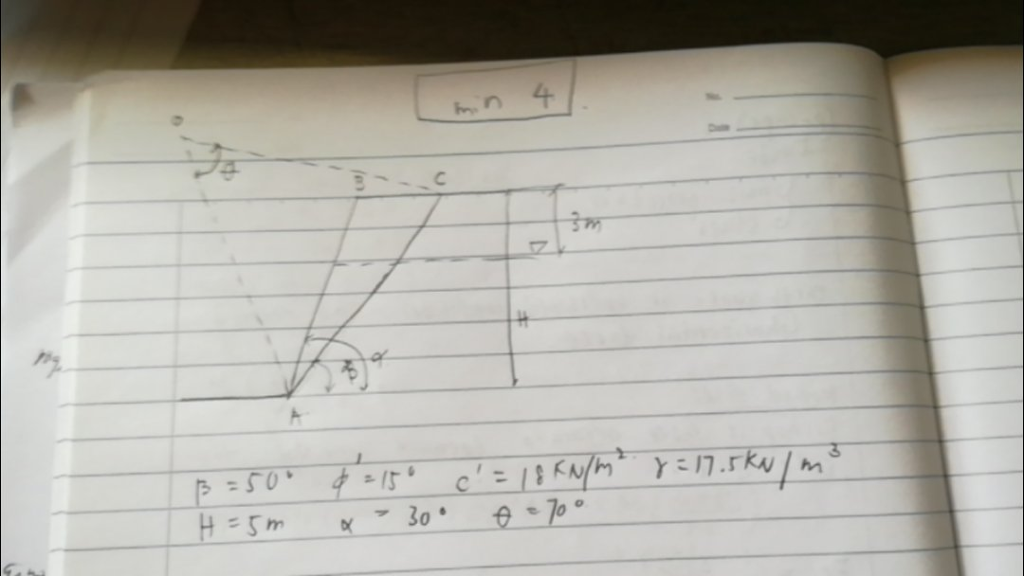 min 4
No.
Date
O
θ
B C
3m
H
β α
A
β = 50° φ' = 15° c' = 18 KN/m² γ = 17.5 KN/m³
H = 5m α = 30° θ = 70°